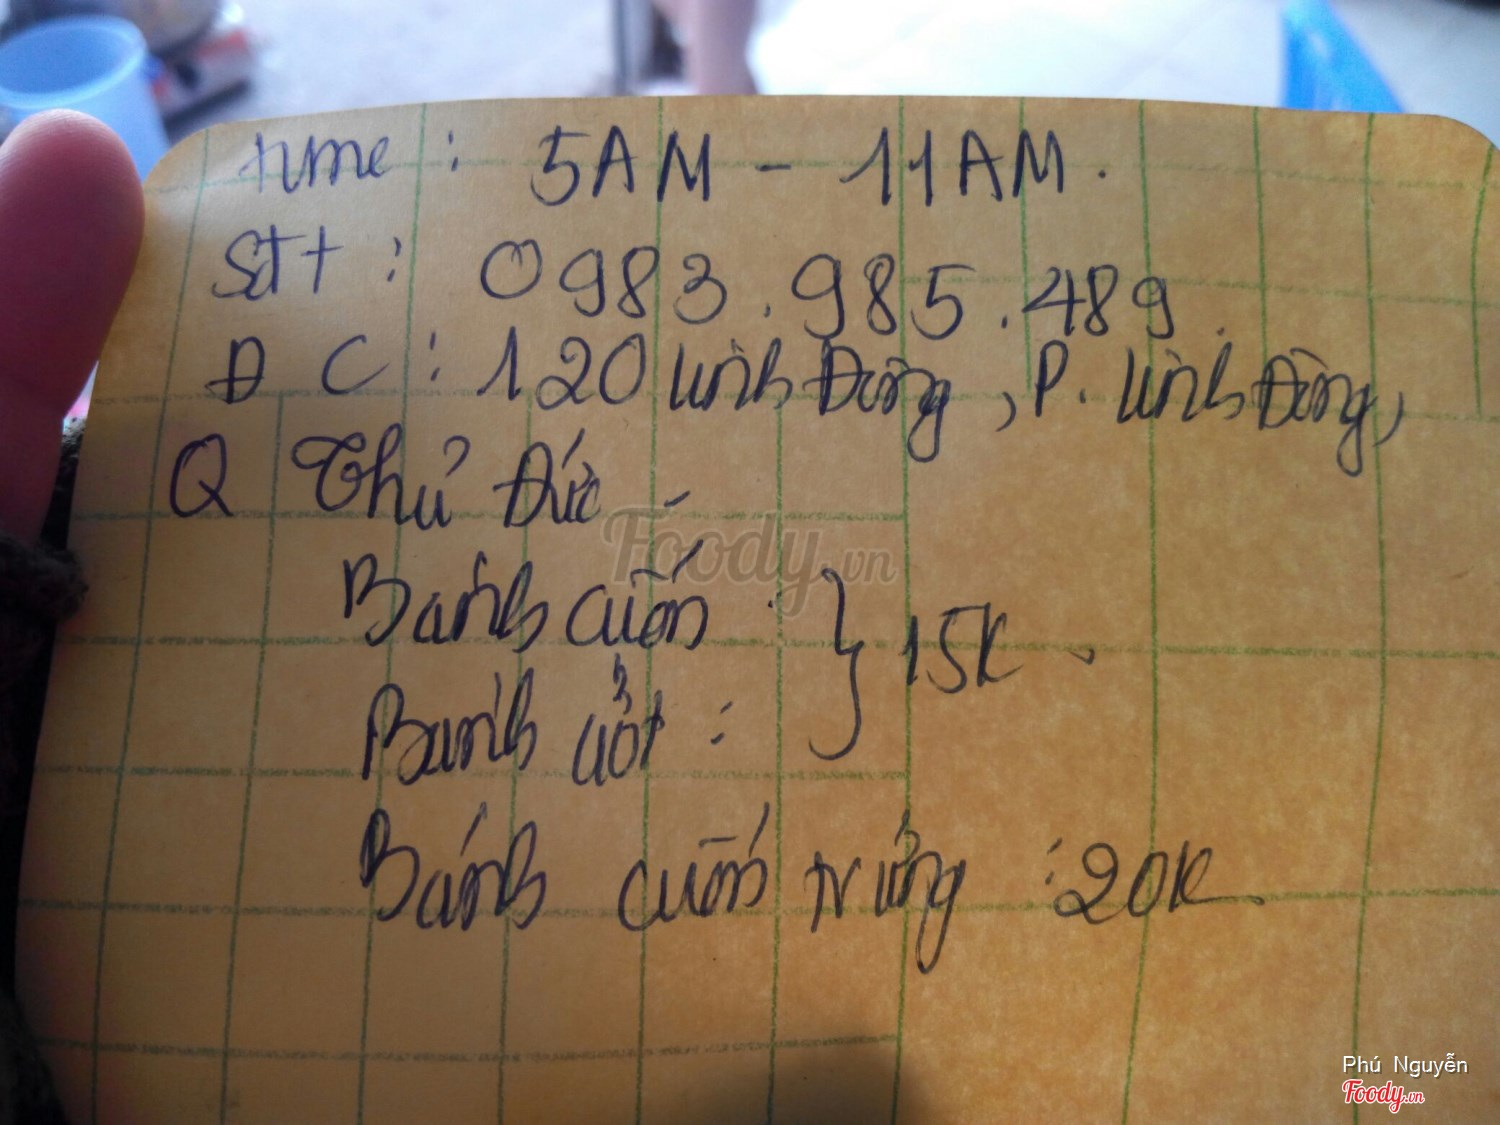 time : 5AM - 11AM.
Sđt : 0983.985.489.
ĐC : 120 Linh Đông, P. Linh Đông,
Q Thủ Đức
Bánh cuốn :
} 15K
Bánh ướt :
Bánh cuốn trứng : 20K
Foody.vn
Phú Nguyễn
Foody.vn